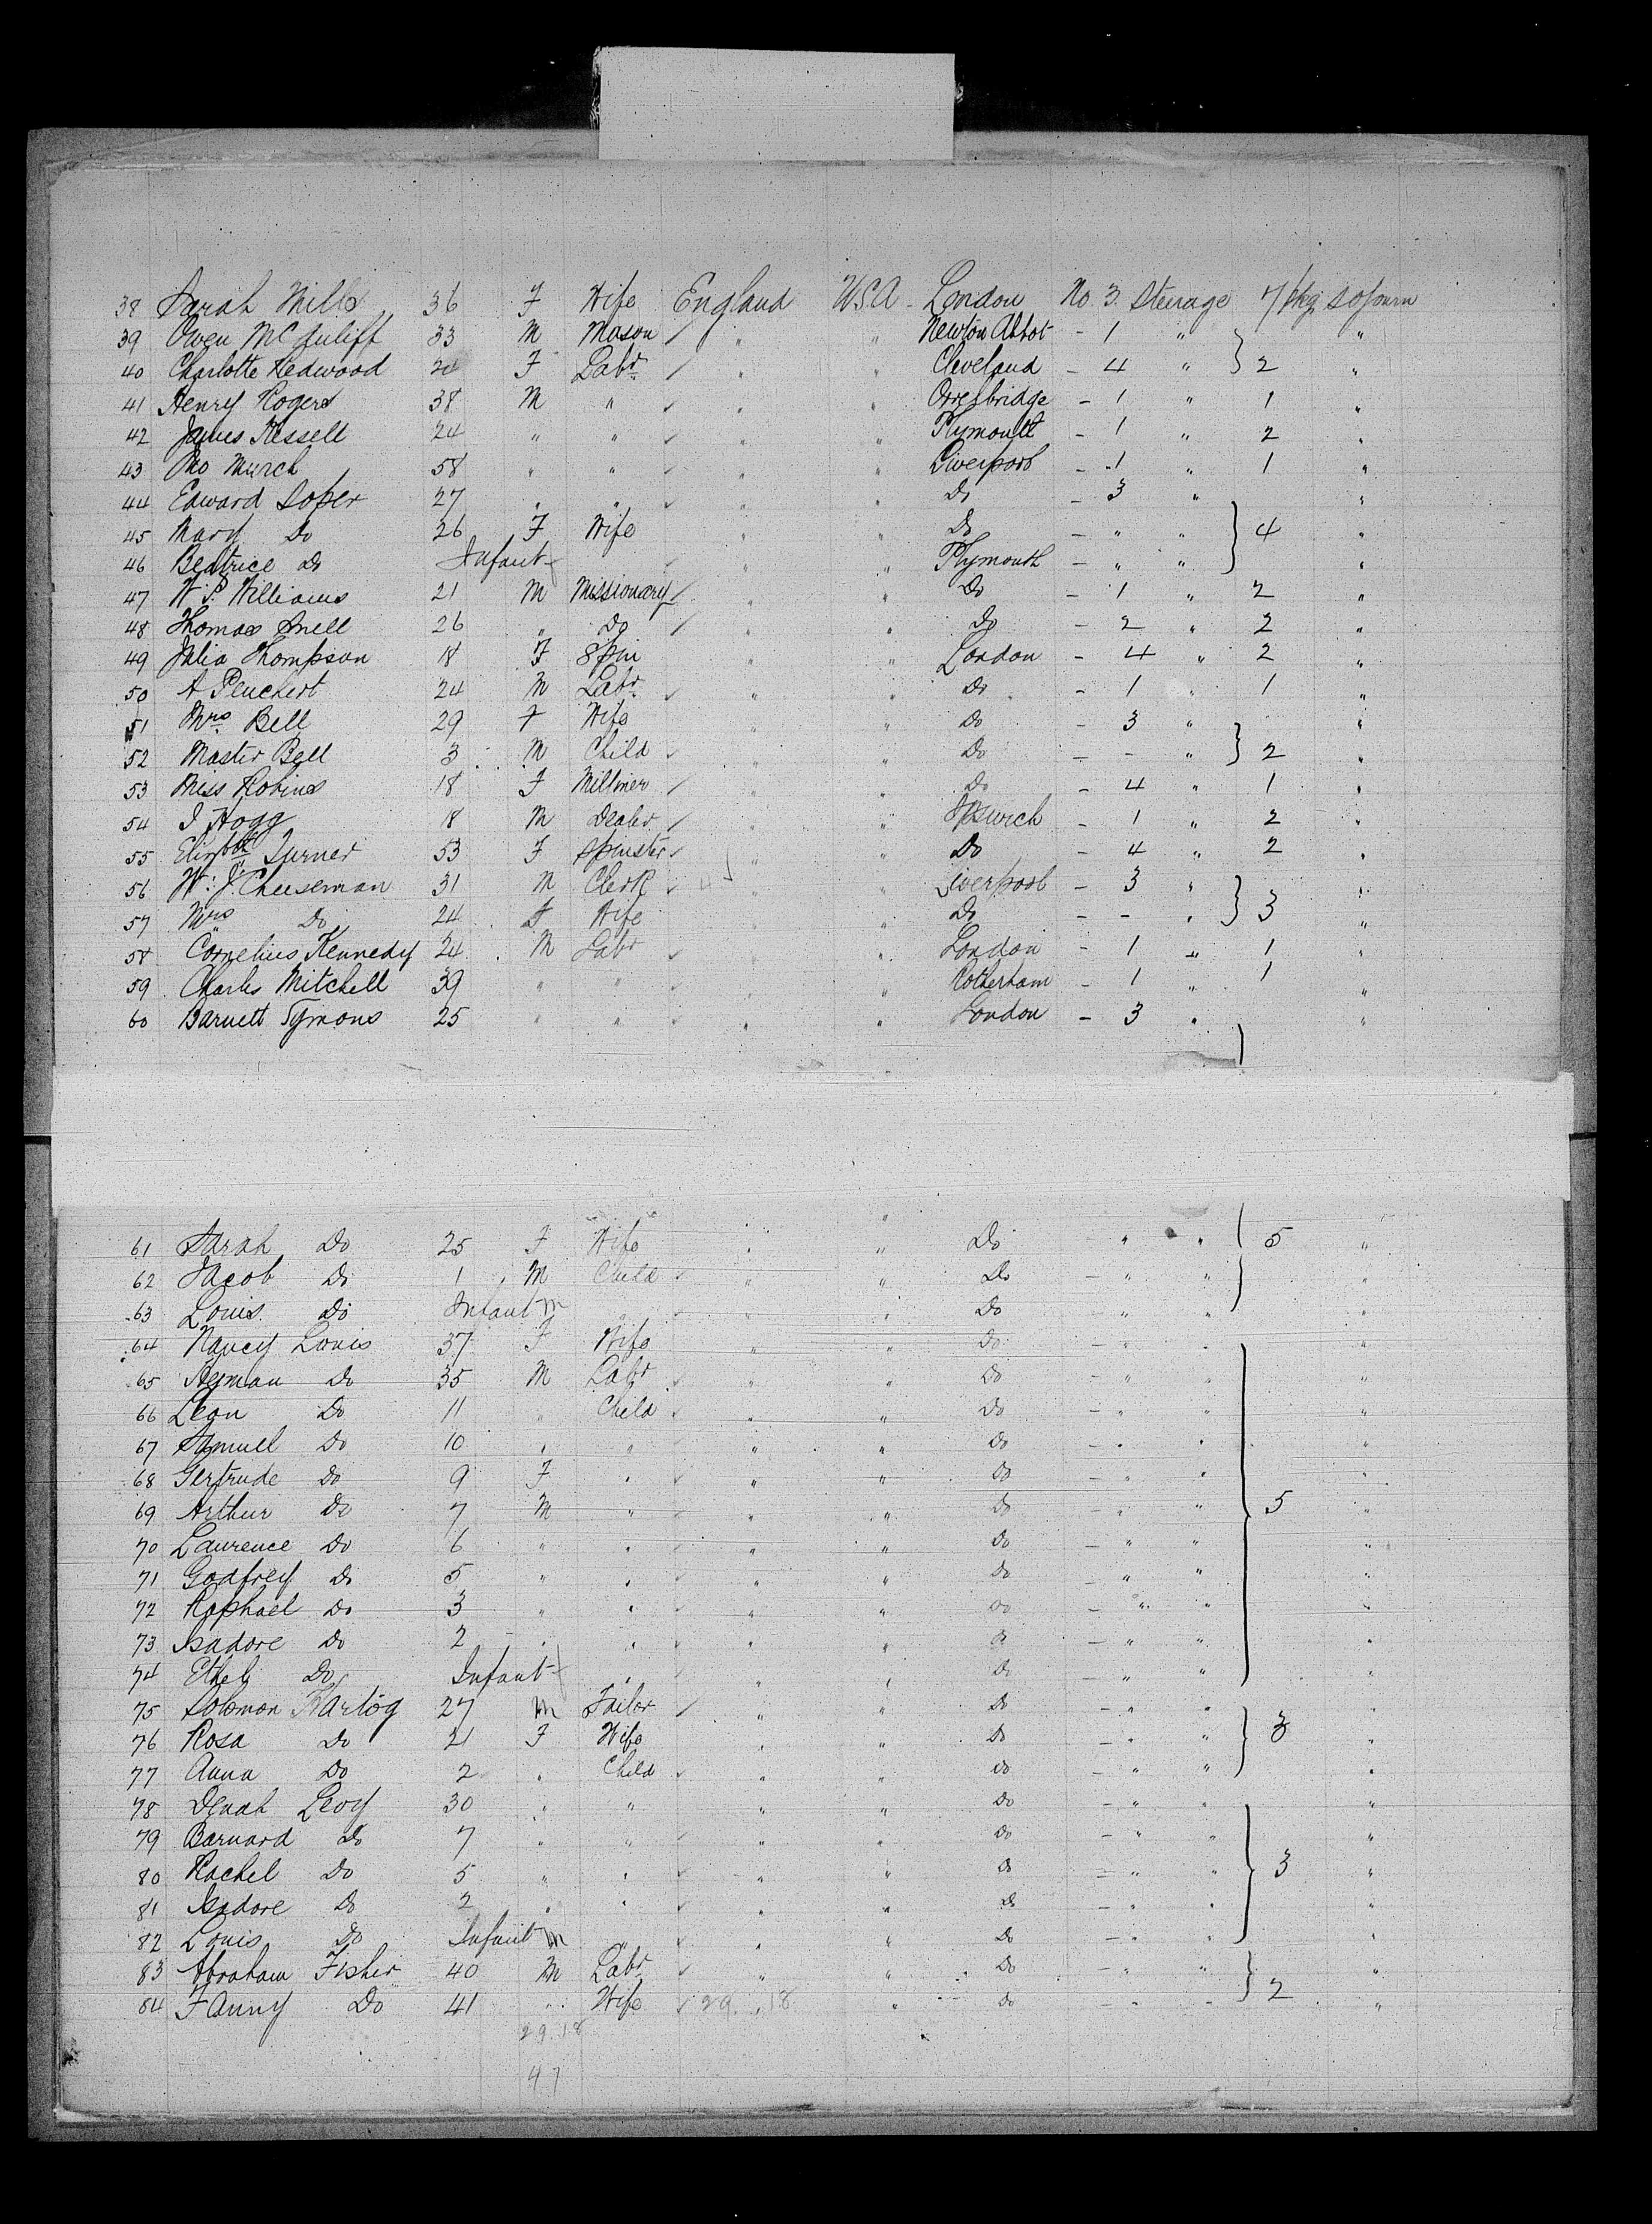 38 Sarah Mills 36 F Wife England USA London No. 3. Steerage 7 pkg sojourn
39 Owen McAuliff 33 M Mason " " Newton Abbot - 1 " "
40 Charlotte Redwood F Labr " " Cleveland - 4 " 2 "
41 Henry Rogers 38 M " " " - 1 " 1 "
42 James Kessell 24 " " " " Plymouth - 1 " 2 "
43 Jno Murch 58 " " " " Liverpool - 1 " 1 "
44 Edward Soper 27 " " " " Do - 3 " "
45 Mary Do 26 F Wife " " Do - " " 4 "
46 Beatrice Do Infant f " " Plymouth - " " "
47 W. P. Williams 21 M Missionary " " Do - 1 " 2 "
48 Thomas Snell 26 " Do " " Do - 2 " 2 "
49 Julia Thompson 18 F Spin " " London - 4 " 2 "
50 A Peuchert 24 M Labr " " Do - 1 " 1 "
51 Mrs Bell 29 F Wife " " Do - 3 " "
52 Master Bell 3 M Child " " Do - - " 2 "
53 Miss Robins 18 F Milliner " " Do - 4 " 1 "
54 J Hogg 18 M Dealer " " Ipswich - 1 " 2 "
55 Elizabth Turner 53 F Spinster " " Do - 4 " 2 "
56 W. J. Cheeseman 31 M Clerk " " Liverpool - 3 " "
57 Mrs Do 24 F Wife " " Do - - " 3 "
58 Cornelius Kennedy 24 M Labr " " London - 1 " 1 "
59 Charles Mitchell 39 " " " " Rotherham - 1 " 1 "
60 Barnett Symons 25 " " " " London - 3 " "
61 Sarah Do 25 F Wife " " Do - " " 5 "
62 Jacob Do 1 M Child " " Do - " " "
63 Louis Do Infant m " " " Do - " " "
64 Nancy Louis 37 F Wife " " Do - " " "
65 Hyman Do 35 M Labr " " Do - " " "
66 Leon Do 11 " Child " " Do - " " "
67 Samuel Do 10 " " " " Do - " " "
68 Gertrude Do 9 F " " " Do - " " "
69 Arthur Do 7 M " " " Do - " " 5 "
70 Laurence Do 6 " " " " Do - " " "
71 Godfrey Do 5 " " " " Do - " " "
72 Raphael Do 3 " " " " Do - " " "
73 Isadore Do 2 " " " " Do - " " "
74 Ethel Do Infant f " " " Do - " " "
75 Solomon Hartog 27 m Tailor " " Do - " " "
76 Rosa Do 21 F Wife " " Do - " " 3 "
77 Anna Do 2 " Child " " Do - " " "
78 Denah Levy 30 " " " " Do - " " "
79 Barnard Do 7 " " " " Do - " " "
80 Rachel Do 5 " " " " Do - " " 3 "
81 Isadore Do 2 " " " " Do - " " "
82 Louis Do Infant m " " " Do - " " "
83 Abraham Fisher 40 M Labr " " Do - " " "
84 Fanny Do 41 " Wife 29. 18 " Do - " " 2 "
29 18
47